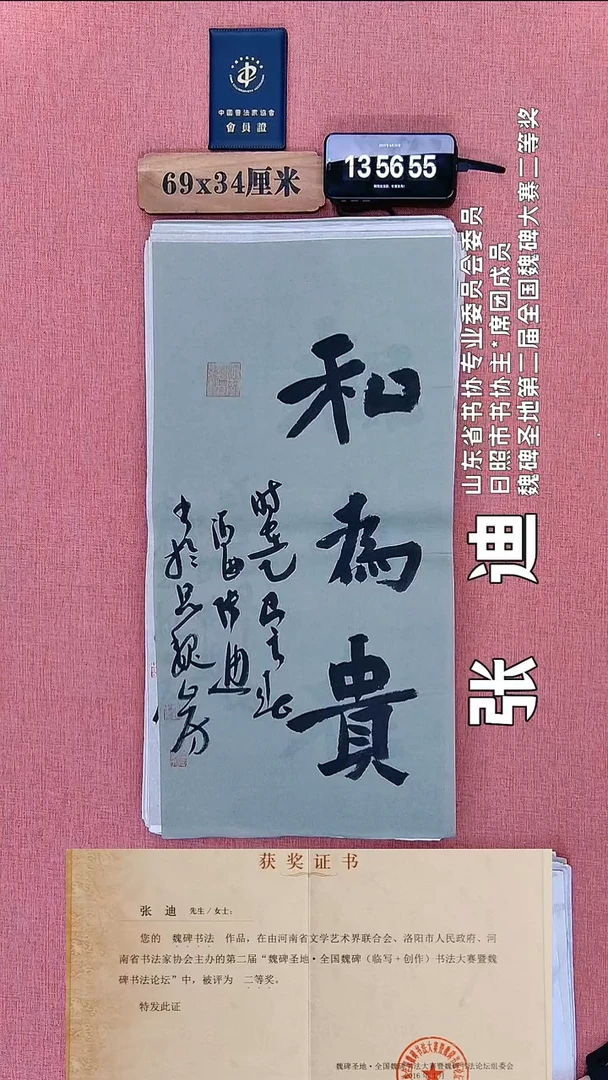 中國書法家協會
會員證
69x34厘米
13 56 55
山东省书协专业委员会委员
日照市书协主*席团成员
魏碑圣地第二届全国魏碑大赛二等奖
张 迪
和為貴
获奖证书
张 迪 先生/女士：
您的 魏碑书法 作品，在由河南省文学艺术界联合会、洛阳市人民政府、河
南省书法家协会主办的第二届“魏碑圣地·全国魏碑（临写+创作）书法大赛暨魏
碑书法论坛”中，被评为 二等奖。
特发此证
魏碑圣地·全国魏碑书法大赛暨魏碑书法论坛组委会